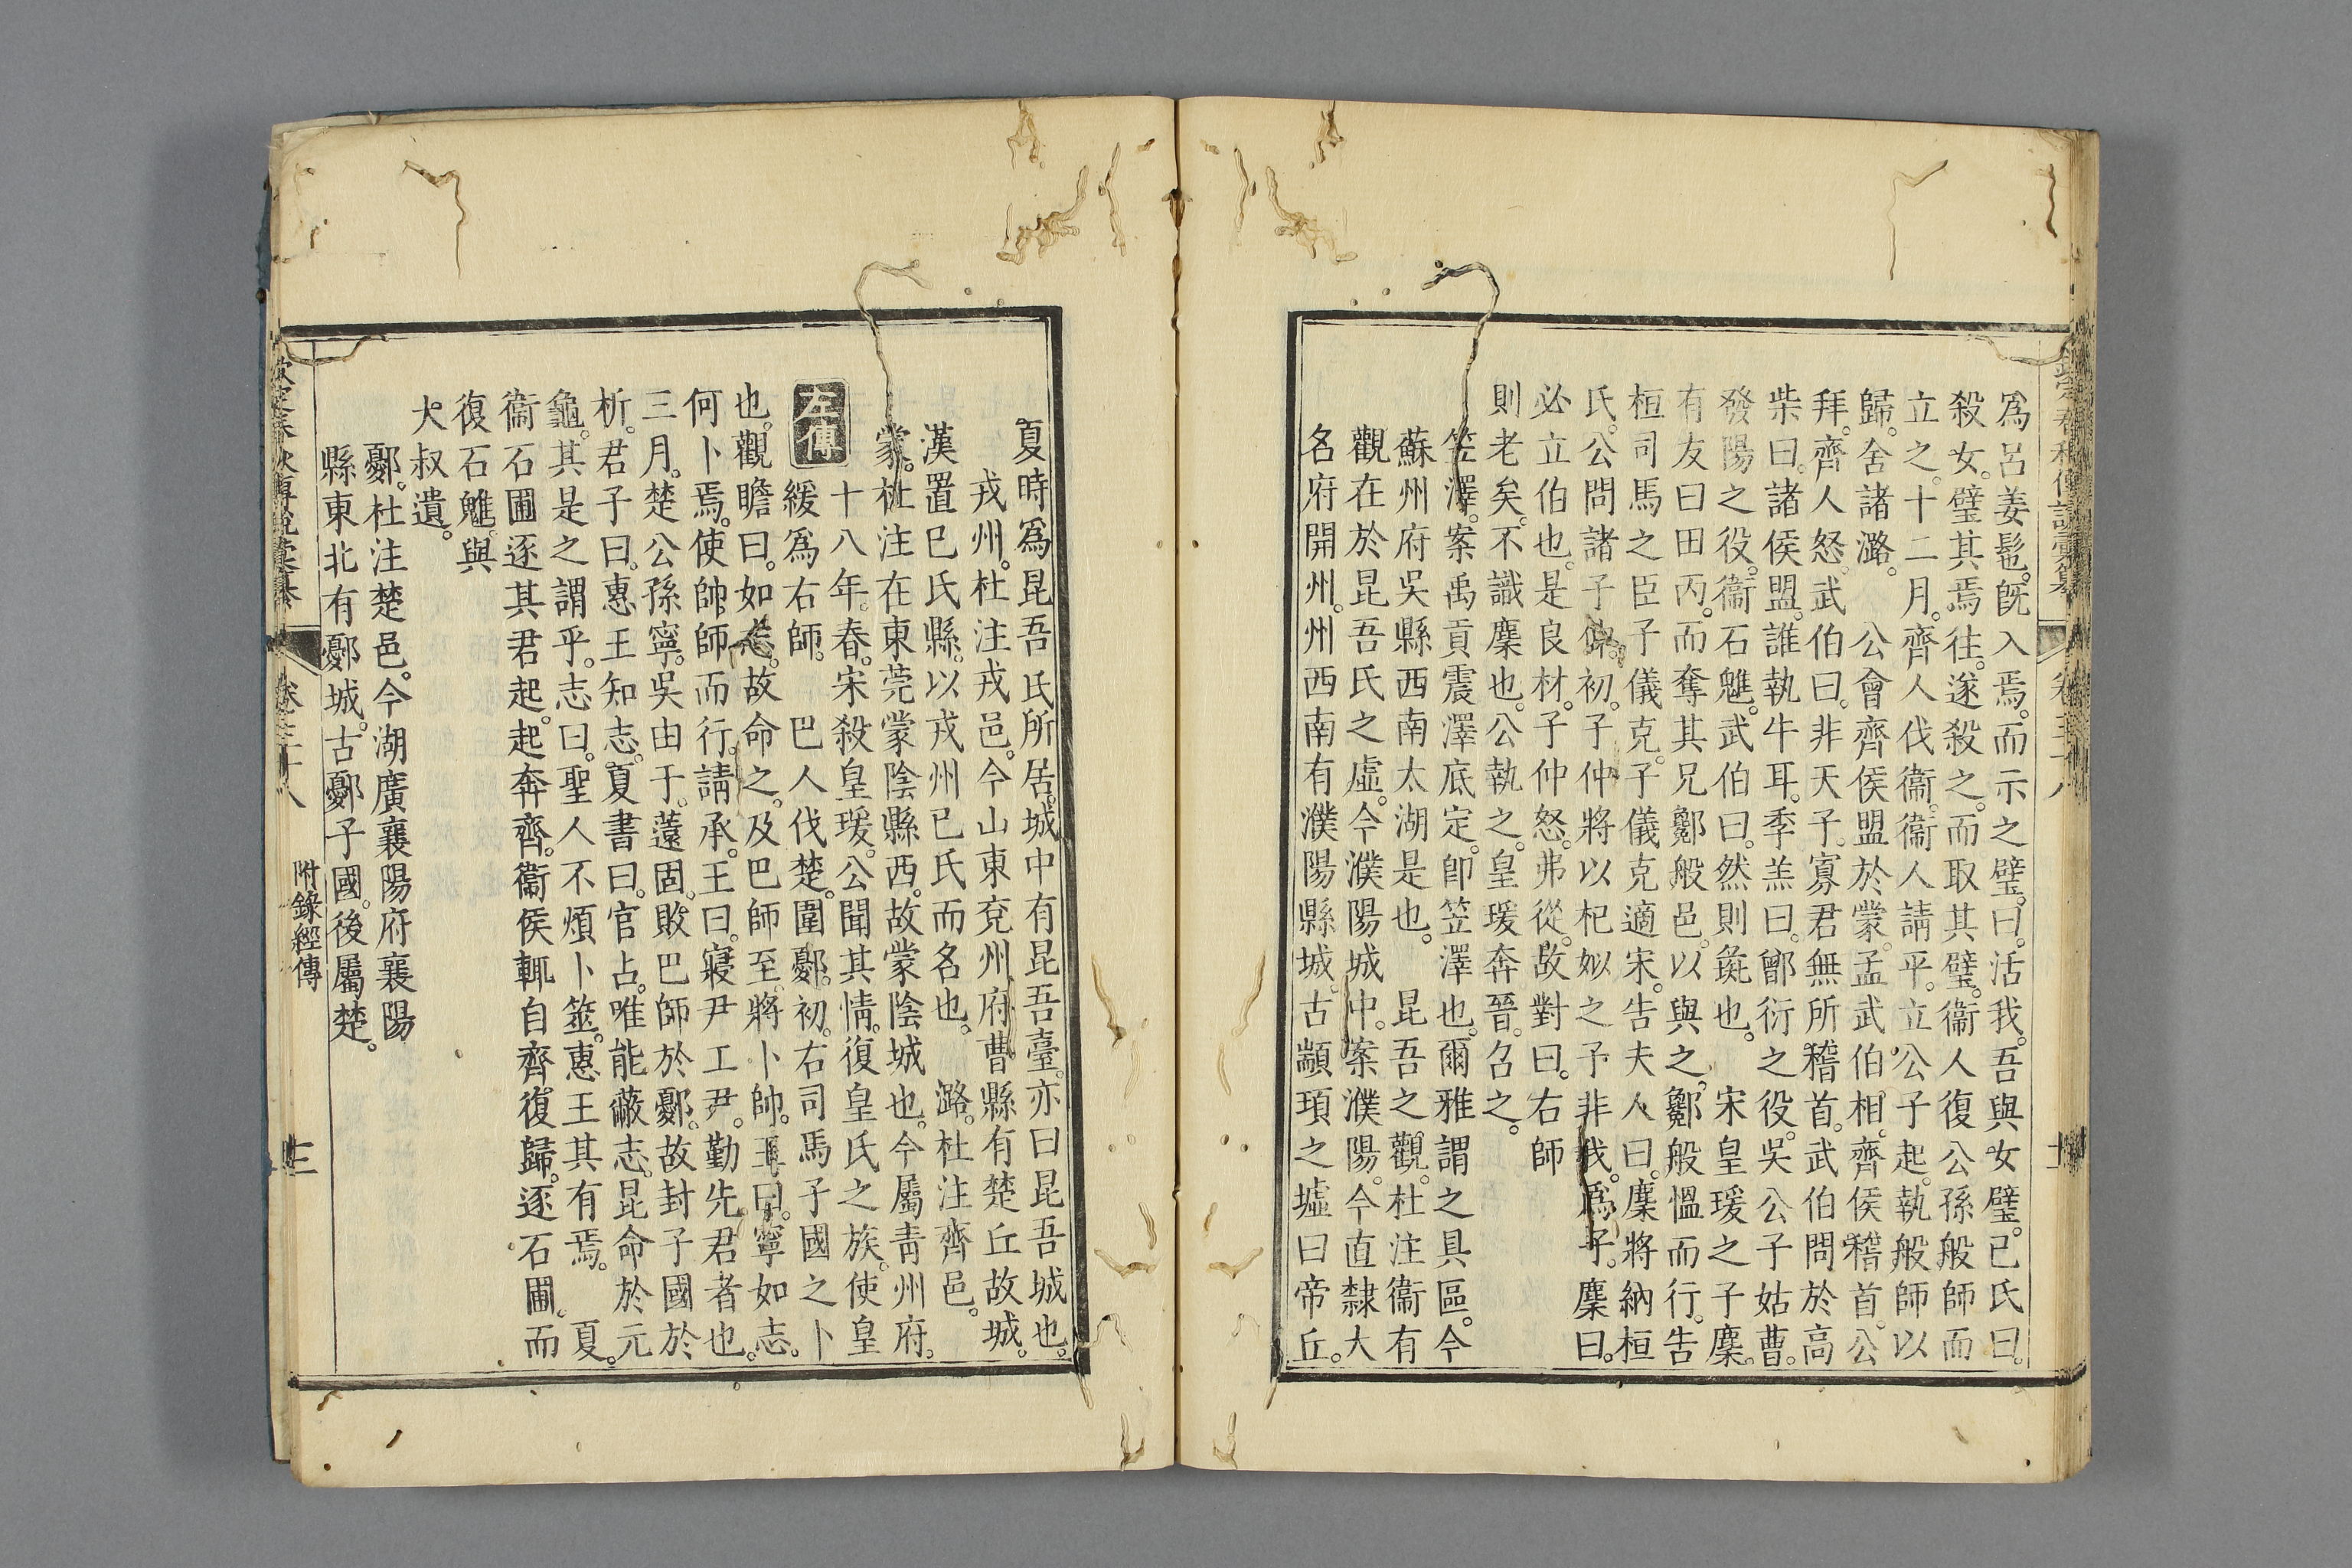 欽定春秋傳說彙纂 卷三十八
爲呂姜髢。旣入焉。而示之璧。曰。活我。吾與女璧。已氏曰。
殺女。璧其焉往。遂殺之。而取其璧。衞人復公孫般師而
立之。十二月。齊人伐衞。衞人請平。立公子起。執般師以
歸。舍諸潞。　公會齊侯盟於蒙。孟武伯相。齊侯稽首。公
拜。齊人怒。武伯曰。非天子。寡君無所稽首。武伯問於高
柴曰。諸侯盟。誰執牛耳。季羔曰。鄫衍之役。吳公子姑曹。
發陽之役。衞石魋。武伯曰。然則彘也。　宋皇瑗之子麇。
有友曰田丙。而奪其兄鄭般邑。以與之。鄭般慍而行。告
桓司馬之臣子儀克。子儀克適宋。告夫人曰。麇將納桓
氏。公問諸子仲。初。子仲將以杞姒之子非我。爲子。麇曰。
必立伯也。是良材。子仲怒。弗從。故對曰。右師
則老矣。不識麇也。公執之。皇瑗奔晉。召之。
笠澤。案禹貢震澤底定。卽笠澤也。爾雅謂之具區。今
蘇州府吳縣西南太湖是也。　昆吾之觀。杜注衞有
觀在於昆吾氏之虛。今濮陽城中。案濮陽。今直隸大
名府開州。州西南有濮陽縣城。古顓頊之墟曰帝丘。
夏時爲昆吾氏所居。城中有昆吾臺。亦曰昆吾城也。
戎州。杜注戎邑。今山東兗州府曹縣有楚丘故城。
漢置已氏縣。以戎州已氏而名也。　潞。杜注齊邑。
蒙。杜注在東莞蒙陰縣西。故蒙陰城也。今屬靑州府。
十八年。春。宋殺皇瑗。公聞其情。復皇氏之族。使皇
左傳
緩爲右師。　巴人伐楚。圍鄾。初。右司馬子國之卜
也。觀瞻曰。如志。故命之。及巴師至。將卜帥。王曰。寧如志。
何卜焉。使帥師而行。請承。王曰。寢尹工尹。勤先君者也。
三月。楚公孫寧。吳由于。薳固。敗巴師於鄾。故封子國於
析。君子曰。惠王知志。夏書曰。官占。唯能蔽志。昆命於元
龜。其是之謂乎。志曰。聖人不煩卜筮。惠王其有焉。　夏。
衞石圃逐其君起。起奔齊。衞侯輒自齊復歸。逐石圃。而
復石魋。與
大叔遺。
鄾。杜注楚邑。今湖廣襄陽府襄陽
縣東北有鄾城。古鄾子國。後屬楚。
欽定春秋傳說彙纂 卷三十八 附錄經傳 三